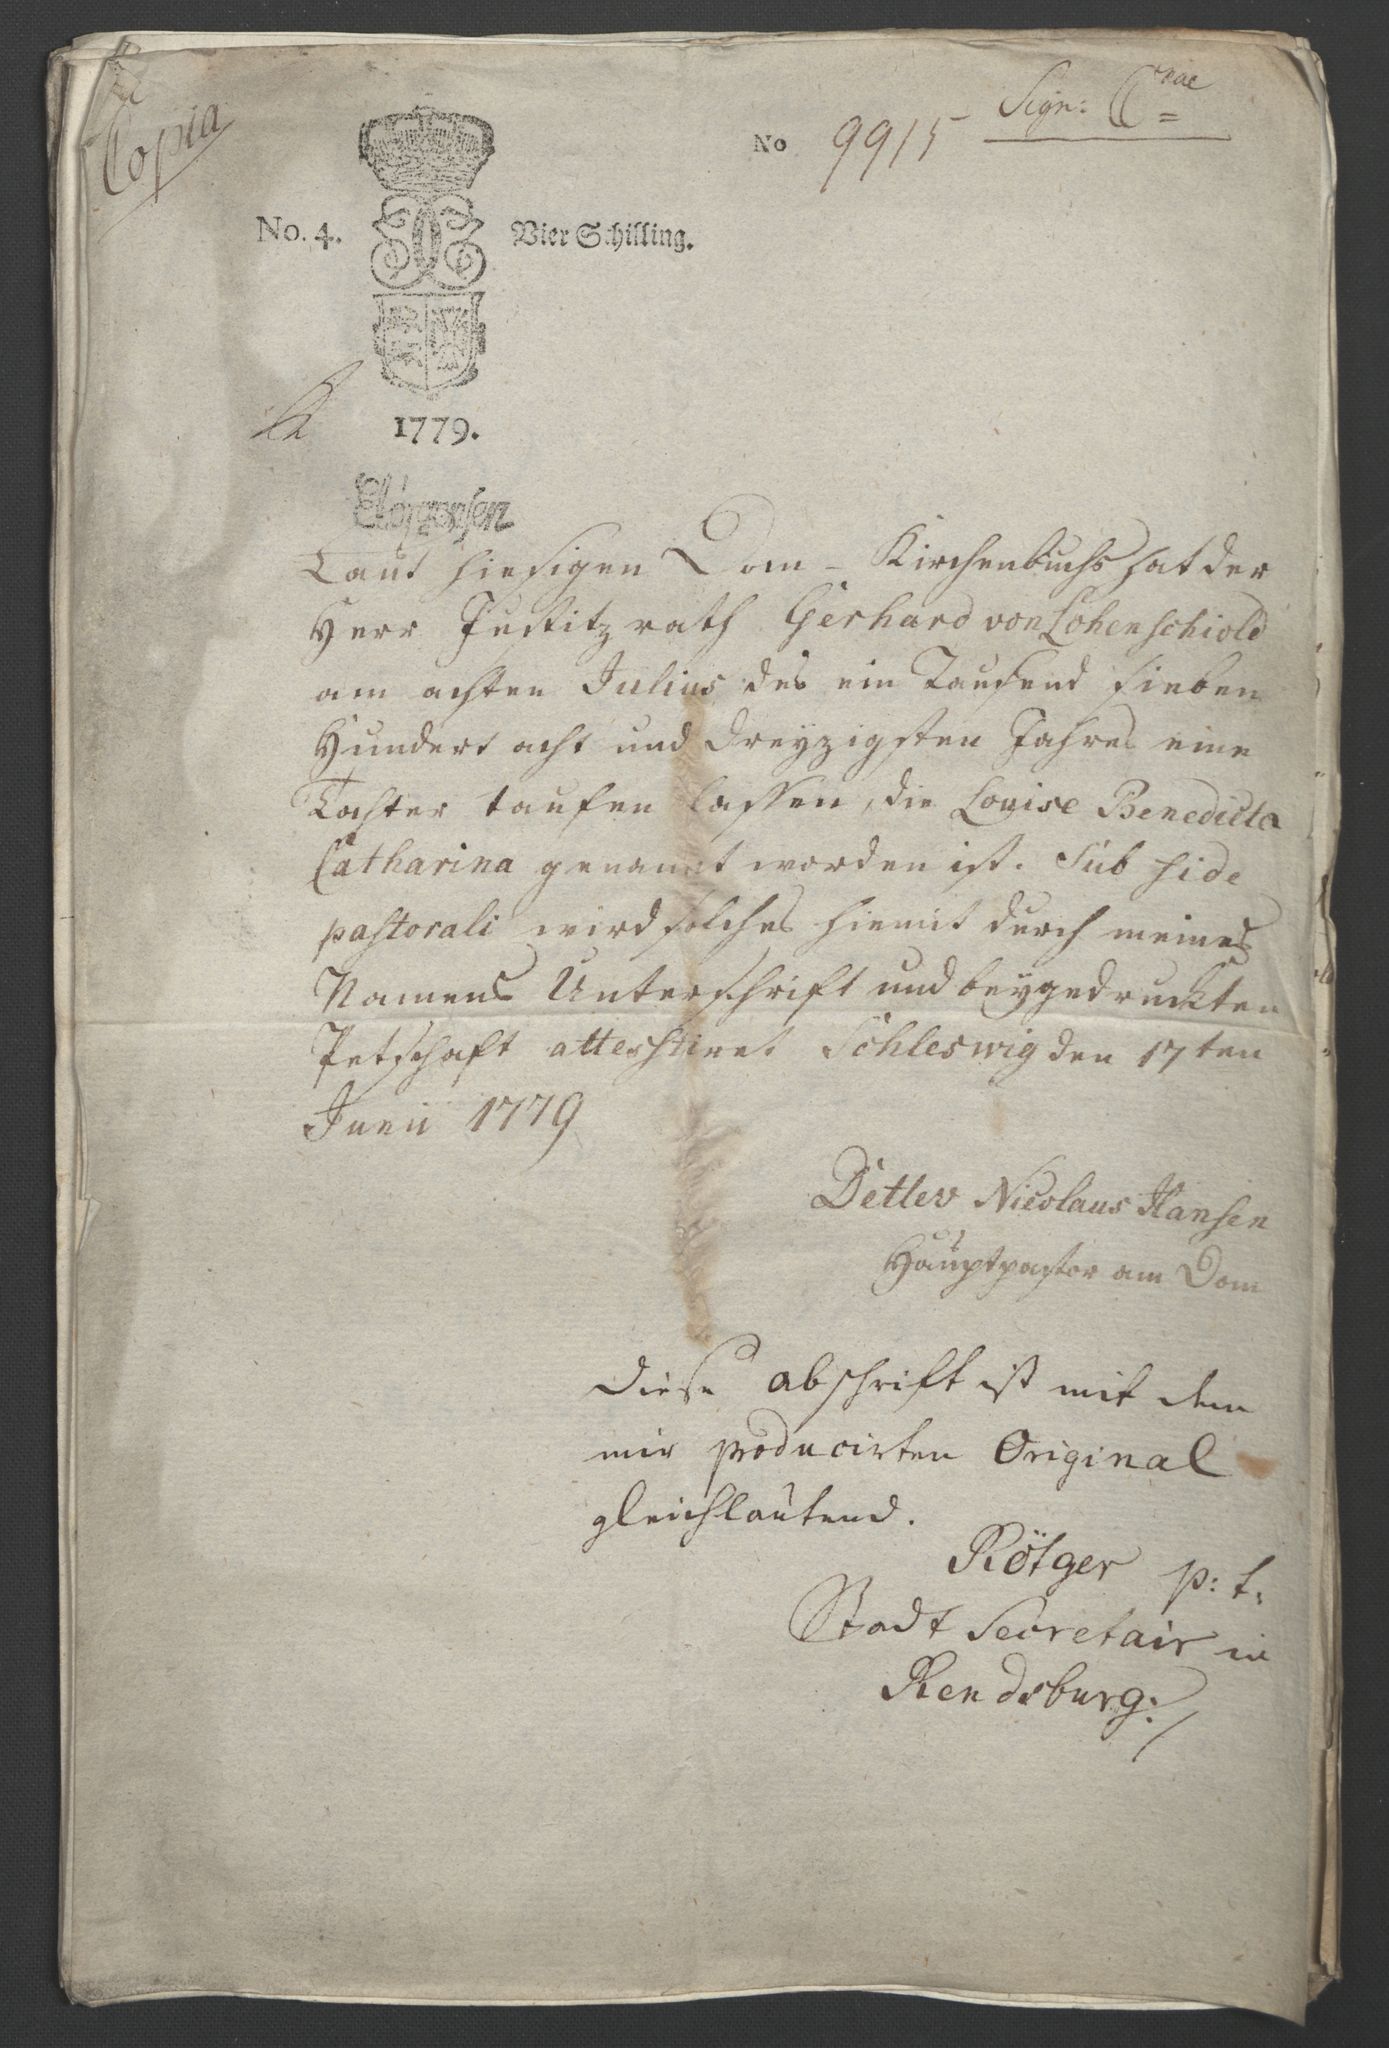 Copia
Sign:
No 9915
No. 4. Vier Schilling.
1779.
Laut hiesigen Dom-Kirchenbuchs hat der
Herr Justitzrath Gerhard von Lohenschiold
am achten Julius des ein Tausend sieben
Hundert acht und dreyzigsten Jahres eine
Tochter taufen lassen, die Louise Benedicta
Catharina genannt worden ist. Sub fide
pastorali wird solches hiemit durch meines
Namens Unterschrift und beygedruckten
Petschaft attestiret. Schleswig den 17ten
Junii 1779
Detlev Nicolaus Hansen
Hauptpastor am Dom
Diese Abschrift ist mit dem
mir producirten Original
gleichlautend.
Rötger p: t:
Stadt Secretair in
Rendsburg:/